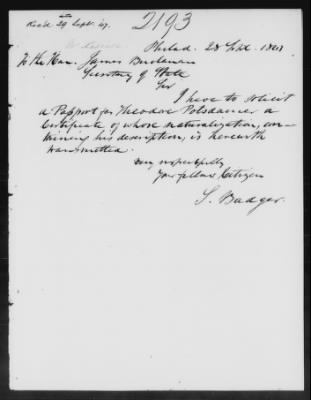 Rec'd 29 Sept. 47.
2193
Philad. 28 Sept. 1847
To the Hon. James Buchanan
Secretary of State
Sir
I have to solicit
a Passport for Theodore Potsdamer a
Certificate of whose naturalization, con-
taining his description, is herewith
transmitted.
Very respectfully
Your fellow Citizen
S. Badger.